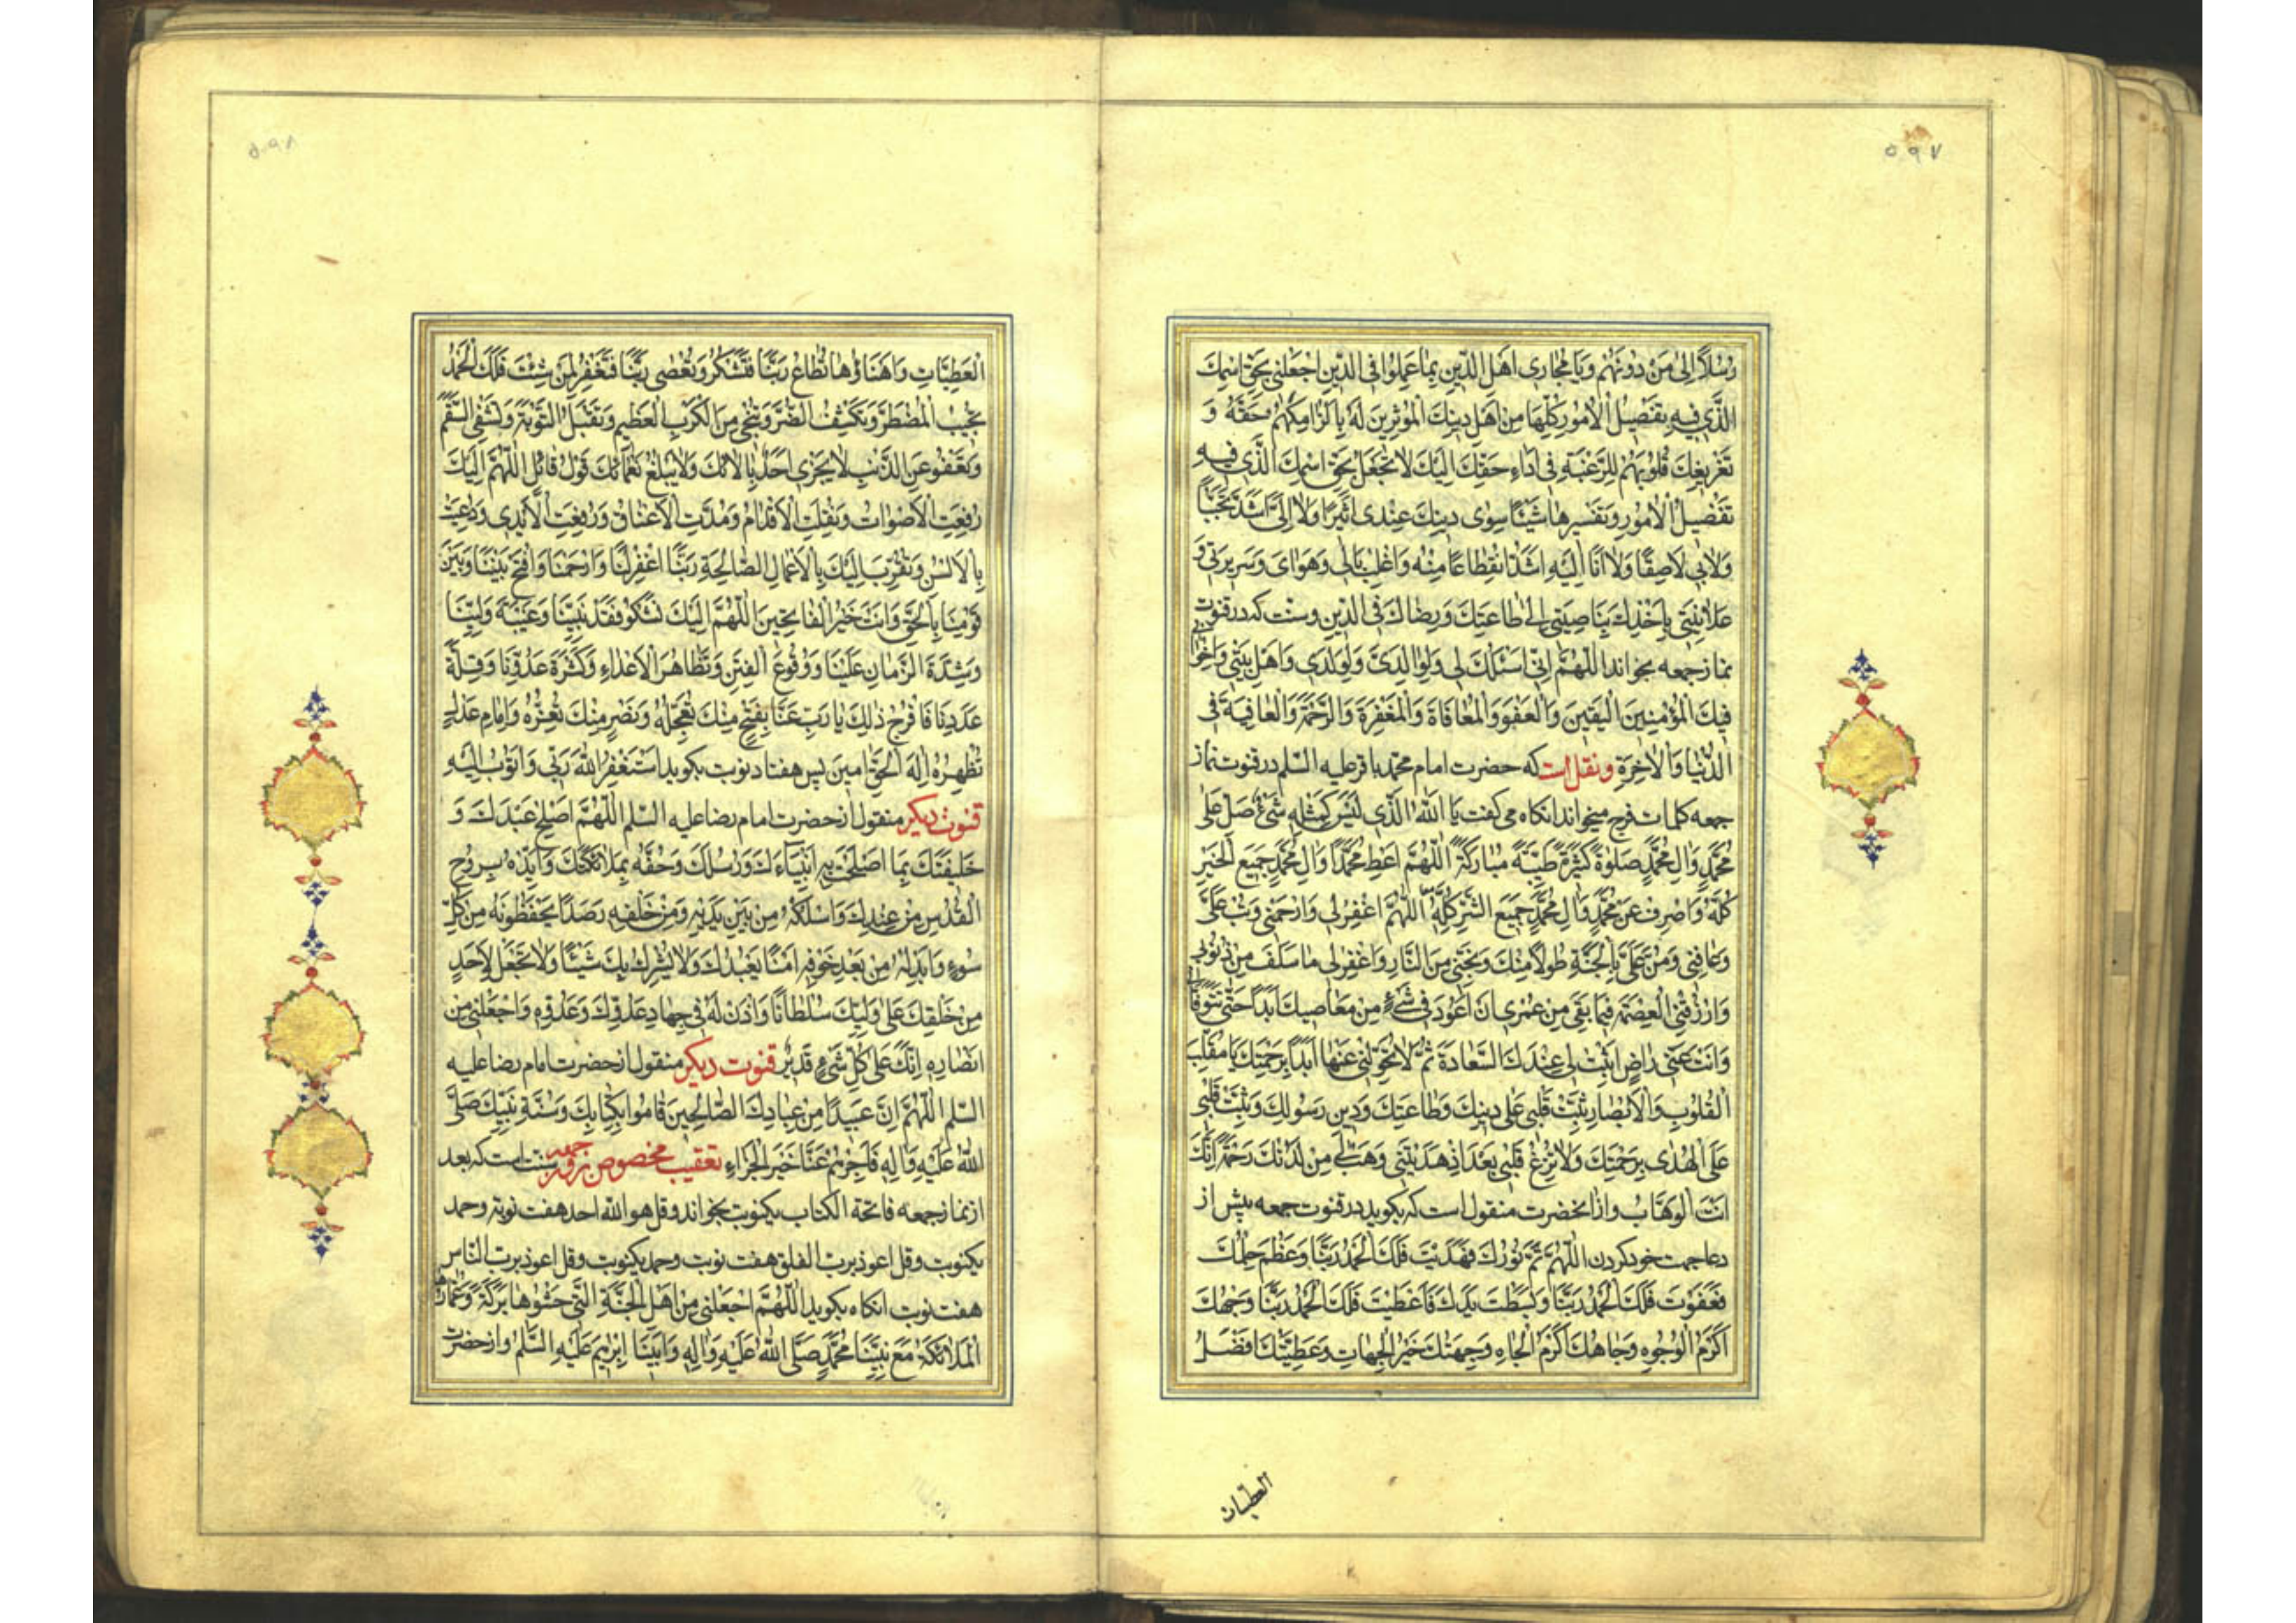 ۵۹۷
رُسُلًا اِلىٰ مَنْ دُونَهُمْ وَيَا مُجَازِى اَهْلِ الدّينِ بِمَا عَمِلُوا فِى الدّينِ اجْعَلْنى بِحَقِّ اسْمِكَ
الَّذى فيهِ تَفْصيلُ الْاُمُورِ كُلِّهَا مِنْ اَهْلِ دينِكَ الْمُؤْثِرينَ لَهُ بِاِلْزامِكَهُمْ حَقَّهُ وَ
تَفْريغِكَ قُلُوبَهُمْ لِلرَّغْبَةِ فى اَدَاءِ حَقِّكَ اِلَيْكَ لَا تَجْعَلْ بِحَقِّ اسْمِكَ الَّذى فيهِ
تَفْصيلُ الْاُمُورِ وَتَفْسيرُهَا شَيْئًا سِوٰى دينِكَ عِنْدى اَثيرًا وَلَا اِلَىَّ اَشَدَّ تَحَبُّبًا
وَلَا بى لَاصِقًا وَلَا اَنَا اِلَيْهِ اَشَدَّ انْقِطَاعًا مِنْهُ وَاغْلِبْ بَالى وَهَوَاىَ وَسَريرَتى وَ
عَلَانِيَتى بِاَخْذِكَ بِنَاصِيَتى اِلىٰ طَاعَتِكَ وَرِضَاكَ فِى الدّينِ وسنت كه در قنوت
نماز جمعه بخواند اللّٰهُمَّ اِنّى اَسْئَلُكَ لى وَلِوَالِدَىَّ وَلِوَلَدى وَاَهْلِ بَيْتى وَاِخْوَانى
فيكَ الْمُؤْمِنينَ الْيَقينَ وَالْعَفْوَ وَالْمُعَافَاةَ وَالْمَغْفِرَةَ وَالرَّحْمَةَ وَالْعَافِيَةَ فِى
الدُّنْيَا وَالْاٰخِرَةِ ونقل است كه حضرت امام محمد باقر عليه السّلم در قنوت نماز
جمعه كلمات فرج ميخواند انكاه مى كفت يَا اَللّٰهُ الَّذى لَيْسَ كَمِثْلِهِ شَىْءٌ صَلِّ عَلىٰ
مُحَمَّدٍ وَاٰلِ مُحَمَّدٍ صَلٰوةً كَثيرَةً طَيِّبَةً مُبَارَكَةً اَللّٰهُمَّ اَعْطِ مُحَمَّدًا وَاٰلَ مُحَمَّدٍ جَميعَ الْخَيْرِ
كُلَّهُ وَاصْرِفْ عَنْ مُحَمَّدٍ وَاٰلِ مُحَمَّدٍ جَميعَ الشَّرِّ كُلَّهُ اَللّٰهُمَّ اغْفِرْ لى وَارْحَمْنى وَتُبْ عَلَىَّ
وَعَافِنى وَمُنَّ عَلَىَّ بِالْجَنَّةِ طَوْلًا مِنْكَ وَنَجِّنى مِنَ النَّارِ وَاغْفِرْ لى مَا سَلَفَ مِنْ ذُنُوبى
وَارْزُقْنِى الْعِصْمَةَ فيمَا بَقِىَ مِنْ عُمْرى اَنْ اَعُودَ فى شَىْءٍ مِنْ مَعَاصيكَ اَبَدًا حَتّٰى تَتَوَفَّانى
وَاَنْتَ عَنّى رَاضٍ اَثْبِتْ لى عِنْدَكَ السَّعَادَةَ ثُمَّ لَا تُحَوِّلْنى عَنْهَا اَبَدًا بِرَحْمَتِكَ يَا مُقَلِّبَ
الْقُلُوبِ وَالْاَبْصَارِ ثَبِّتْ قَلْبى عَلىٰ دينِكَ وَطَاعَتِكَ وَدينِ رَسُولِكَ وَثَبِّتْ قَلْبى
عَلَى الْهُدٰى بِرَحْمَتِكَ وَلَا تُزِغْ قَلْبى بَعْدَ اِذْ هَدَيْتَنى وَهَبْ لى مِنْ لَدُنْكَ رَحْمَةً اِنَّكَ
اَنْتَ الْوَهَّابُ واز انحضرت منقول است كه بكويد در قنوت جمعه پيش از
دعا جهت خود كردن اَللّٰهُمَّ تَمَّ نُورُكَ فَهَدَيْتَ فَلَكَ الْحَمْدُ رَبَّنَا وَعَظُمَ حِلْمُكَ
فَعَفَوْتَ فَلَكَ الْحَمْدُ رَبَّنَا وَبَسَطْتَ يَدَكَ فَاَعْطَيْتَ فَلَكَ الْحَمْدُ رَبَّنَا وَجْهُكَ
اَكْرَمُ الْوُجُوهِ وَجَاهُكَ اَكْرَمُ الْجَاهِ وَجِهَتُكَ خَيْرُ الْجِهَاتِ وَعَطِيَّتُكَ اَفْضَلُ
العطيات
۵۹۸
الْعَطِيَّاتِ وَاَهْنَاؤُهَا تُطَاعُ رَبَّنَا فَتَشْكُرُ وَتُعْصٰى رَبَّنَا فَتَغْفِرُ لِمَنْ شِئْتَ فَلَكَ الْحَمْدُ
تُجيبُ الْمُضْطَرَّ وَتَكْشِفُ الضُّرَّ وَتُنْجى مِنَ الْكَرْبِ الْعَظيمِ وَتَقْبَلُ التَّوْبَةَ وَتَشْفِى السَّقَمَ
وَتَعْفُو عَنِ الذَّنْبِ لَا يَجْزى اَحَدٌ بِاٰلَائِكَ وَلَا يَبْلُغُ نَعْمَائَكَ قَوْلُ قَائِلٍ اَللّٰهُمَّ اِلَيْكَ
رُفِعَتِ الْاَصْوَاتُ وَنُقِلَتِ الْاَقْدَامُ وَمُدَّتِ الْاَعْنَاقُ وَرُفِعَتِ الْاَيْدى وَدُعِيتَ
بِالْاَلْسُنِ وَتُقُرِّبَ اِلَيْكَ بِالْاَعْمَالِ الصَّالِحَةِ رَبَّنَا اغْفِرْ لَنَا وَارْحَمْنَا وَافْتَحْ بَيْنَنَا وَبَيْنَ
قَوْمِنَا بِالْحَقِّ وَاَنْتَ خَيْرُ الْفَاتِحينَ اَللّٰهُمَّ اِلَيْكَ نَشْكُو فَقْدَ نَبِيِّنَا وَغَيْبَةَ وَلِيِّنَا
وَشِدَّةَ الزَّمَانِ عَلَيْنَا وَوُقُوعَ الْفِتَنِ وَتَظَاهُرَ الْاَعْدَاءِ وَكَثْرَةَ عَدُوِّنَا وَقِلَّةَ
عَدَدِنَا فَافْرُجْ ذٰلِكَ يَا رَبِّ عَنَّا بِفَتْحٍ مِنْكَ تُعَجِّلُهُ وَنَصْرٍ مِنْكَ تُعِزُّهُ وَاِمَامِ عَدْلٍ
تُظْهِرُهُ اِلٰهَ الْحَقِّ اٰمينَ پس هفتاد نوبت بكويد اَسْتَغْفِرُ اللّٰهَ رَبّى وَاَتُوبُ اِلَيْهِ
قنوت ديكر منقول از حضرت امام رضا عليه السّلم اَللّٰهُمَّ اَصْلِحْ عَبْدَكَ وَ
خَليفَتَكَ بِمَا اَصْلَحْتَ بِهِ اَنْبِيَاءَكَ وَرُسُلَكَ وَحُفَّهُ بِمَلَائِكَتِكَ وَاَيِّدْهُ بِرُوحِ
الْقُدُسِ مِنْ عِنْدِكَ وَاسْلُكْهُ مِنْ بَيْنِ يَدَيْهِ وَمِنْ خَلْفِهِ رَصَدًا يَحْفَظُونَهُ مِنْ كُلِّ
سُوءٍ وَاَبْدِلْهُ مِنْ بَعْدِ خَوْفِهِ اَمْنًا يَعْبُدُكَ وَلَا يُشْرِكُ بِكَ شَيْئًا وَلَا تَجْعَلْ لِاَحَدٍ
مِنْ خَلْقِكَ عَلىٰ وَلِيِّكَ سُلْطَانًا وَاْذَنْ لَهُ فى جِهَادِ عَدُوِّكَ وَعَدُوِّهِ وَاجْعَلْنى مِنْ
اَنْصَارِهِ اِنَّكَ عَلىٰ كُلِّ شَىْءٍ قَديرٌ قنوت ديكر منقول از حضرت امام رضا عليه
السّلم اَللّٰهُمَّ اِنَّ عَبيدًا مِنْ عِبَادِكَ الصَّالِحينَ قَامُوا بِكِتَابِكَ وَسُنَّةِ نَبِيِّكَ صَلَّى
اللّٰهُ عَلَيْهِ وَاٰلِهِ فَاجْزِهِمْ عَنَّا خَيْرَ الْجَزَاءِ تعقيب مخصوص روز جمعه سنت است كه بعد
از نماز جمعه فاتحة الكتاب يكنوبت بخواند وقل هو الله احد هفت نوبة وحمد
يكنوبت وقل اعوذ برب الفلق هفت نوبت وحمد يكنوبت وقل اعوذ برب الناس
هفت نوبت انكاه بكويد اَللّٰهُمَّ اجْعَلْنى مِنْ اَهْلِ الْجَنَّةِ الَّتى حَشْوُهَا بَرَكَةٌ وَعُمَّارُهَا
الْمَلَائِكَةُ مَعَ نَبِيِّنَا مُحَمَّدٍ صَلَّى اللّٰهُ عَلَيْهِ وَاٰلِهِ وَاَبينَا اِبْرٰهيمَ عَلَيْهِ السَّلٰمُ واز حضرت